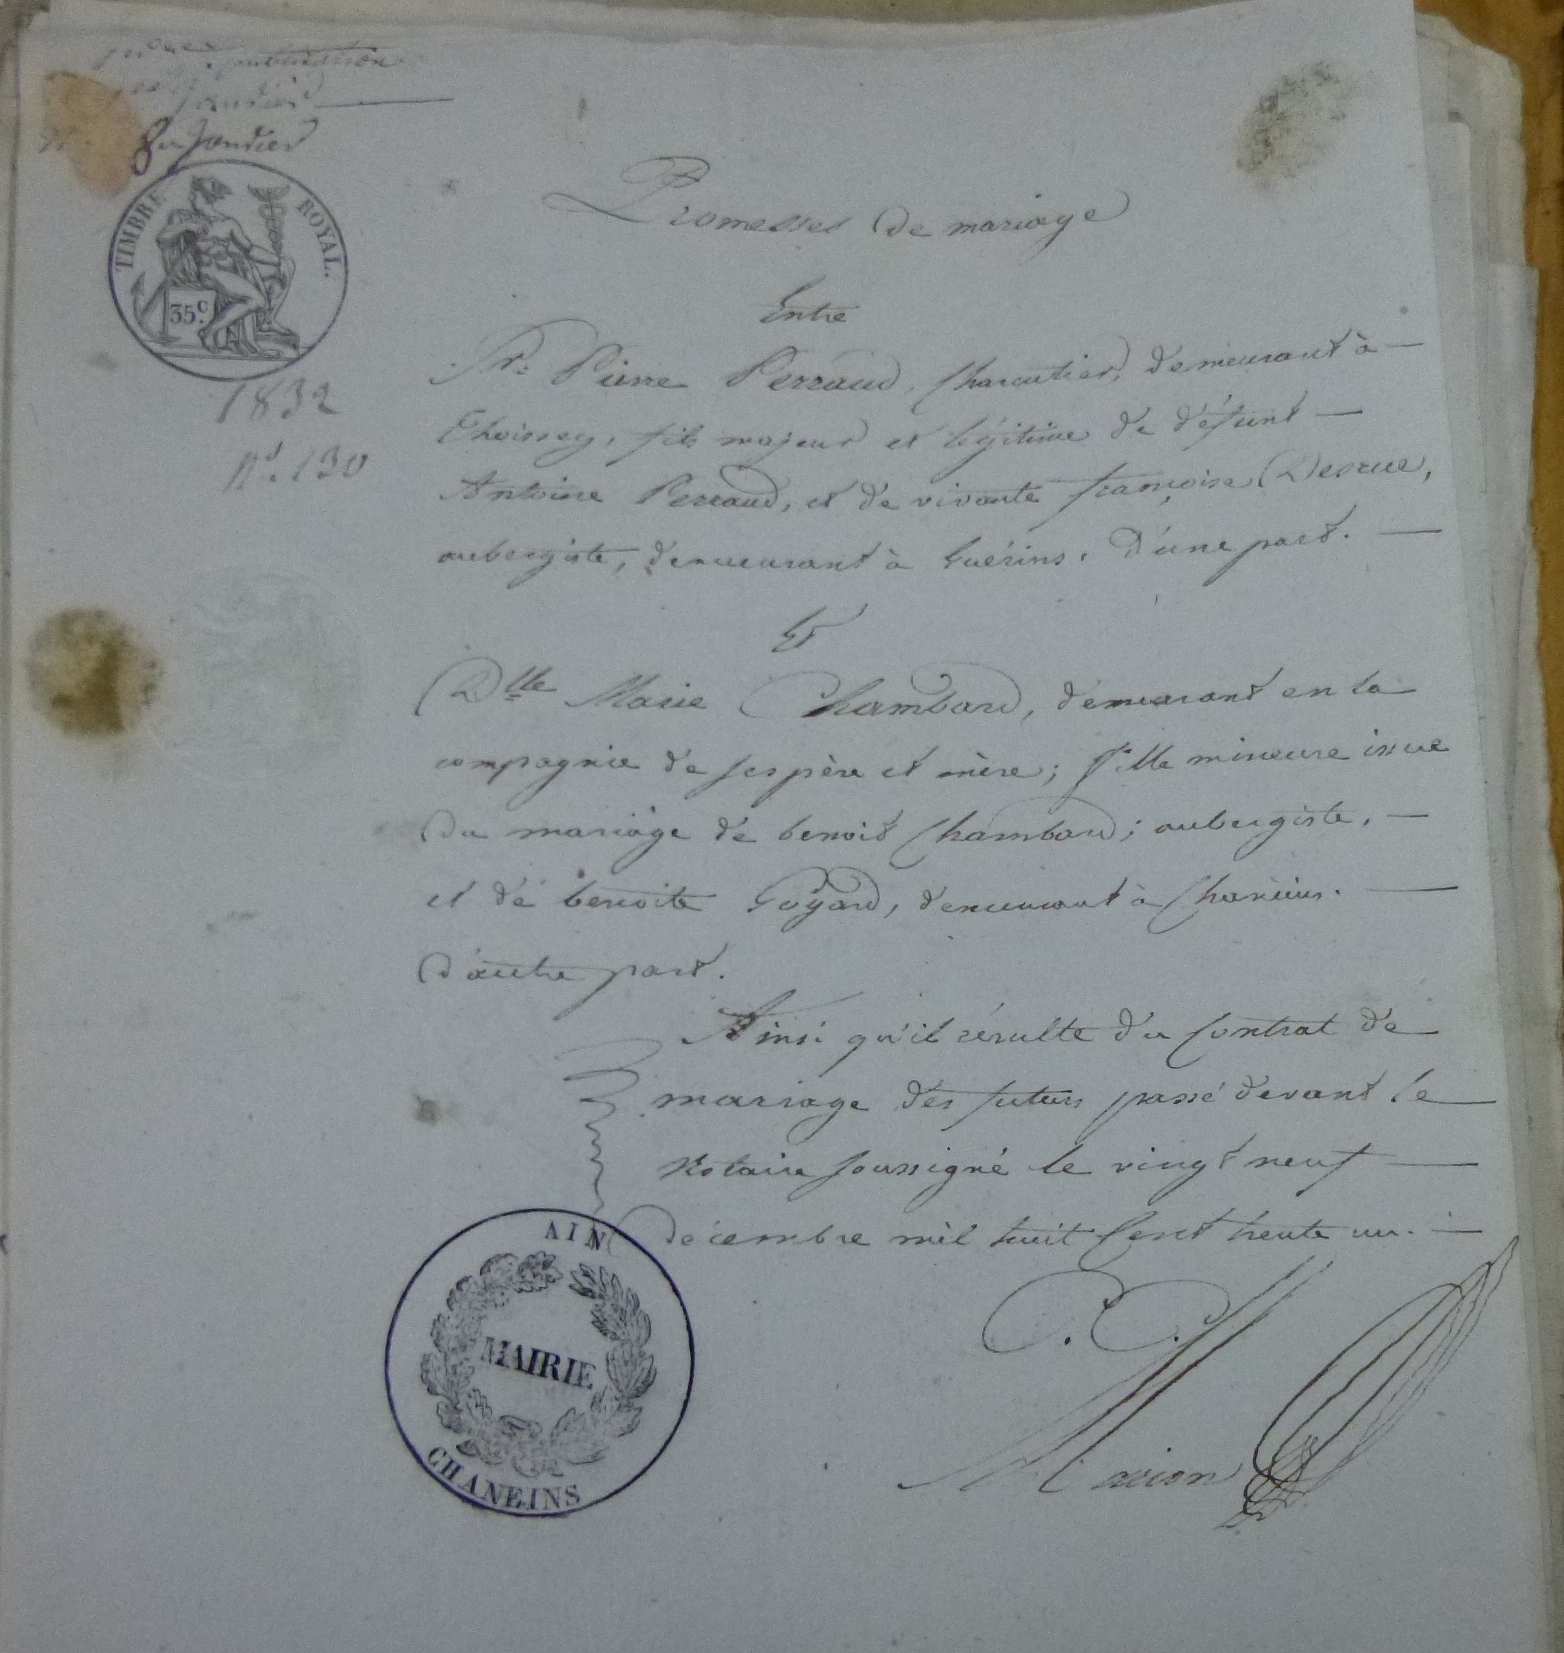 publication
Janvier
8 Janvier
TIMBRE ROYAL.
35c.
1832
Nº. 130
Promesses de mariage
Entre
Sr. Pierre Perraud, Charcutier, demeurant à
Thoissey, fils majeur et légitime de défunt
Antoine Perraud, et de vivante françoise Desrue,
aubergiste, demeurant à Guérins. D'une part.
Et
Dlle Marie Chambard, demeurant en la
compagnie de ses père et mère; fille mineure issue
du mariage de benoit Chambard; aubergiste,
et de benoite Goyard, demeurant à Chaneins.
D'autre part.
Ainsi qu'il résulte du Contrat de
mariage des futurs passé devant le
Notaire soussigné le vingt neuf
décembre mil huit Cent trente un.
AIN
MAIRIE
CHANEINS
Marion